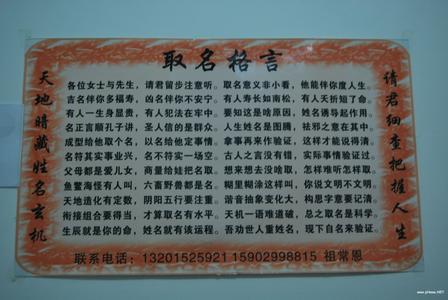 取名格言
天地暗藏姓名玄机
各位女士与先生，请君留步注意听。取名意义非小看，他能伴你度人生。
吉名伴你多福寿，凶名伴你不安宁。有人寿长如南松，有人夭折短了命。
有人一生身显贵，有人犯法在牢中。要知这是啥原因，姓名诱导起作用。
名正言顺孔子讲，圣人信的是群众。人生姓名是图腾，祛邪之意在其中。
成型给他取个名，以名给他定事情。拿事再来作验证，这样才能说得清。
名符其实事业兴，名不符实一场空。古人之言没有错，实际事情验证过。
父母都是爱儿女，商量给娃把名取。想来想去没啥取，怎样难听怎样取。
鱼鳖海怪有人叫，六畜野兽都是名。糊里糊涂这样叫，你说文明不文明。
天地造化有定数，阴阳五行要注重。谐音抽象变化大，构思字意要记清。
衔接组合要得当，才算取名有水平。天机一语难道破，总之取名是科学。
生辰就是你的命，姓名就有该运程。吾劝世人重姓名，现下自名来验证。
请君细查把握人生
联系电话：13201525921 15902998815 祖常恩